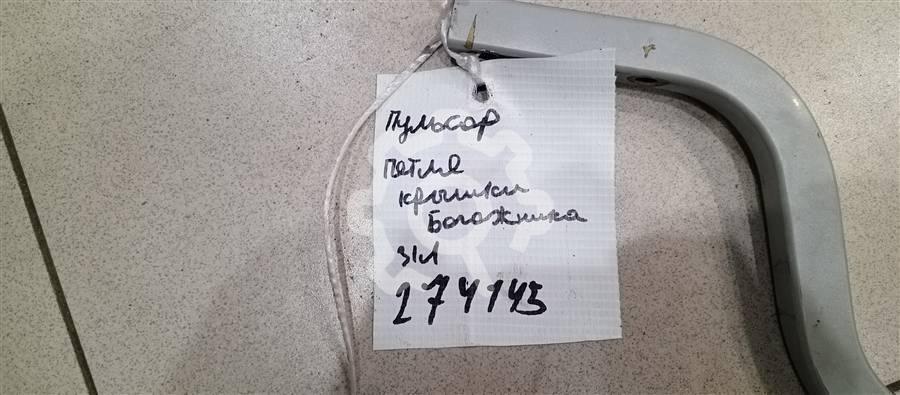 Пульсар
Петля
крышки
Богожника
з/л
274145